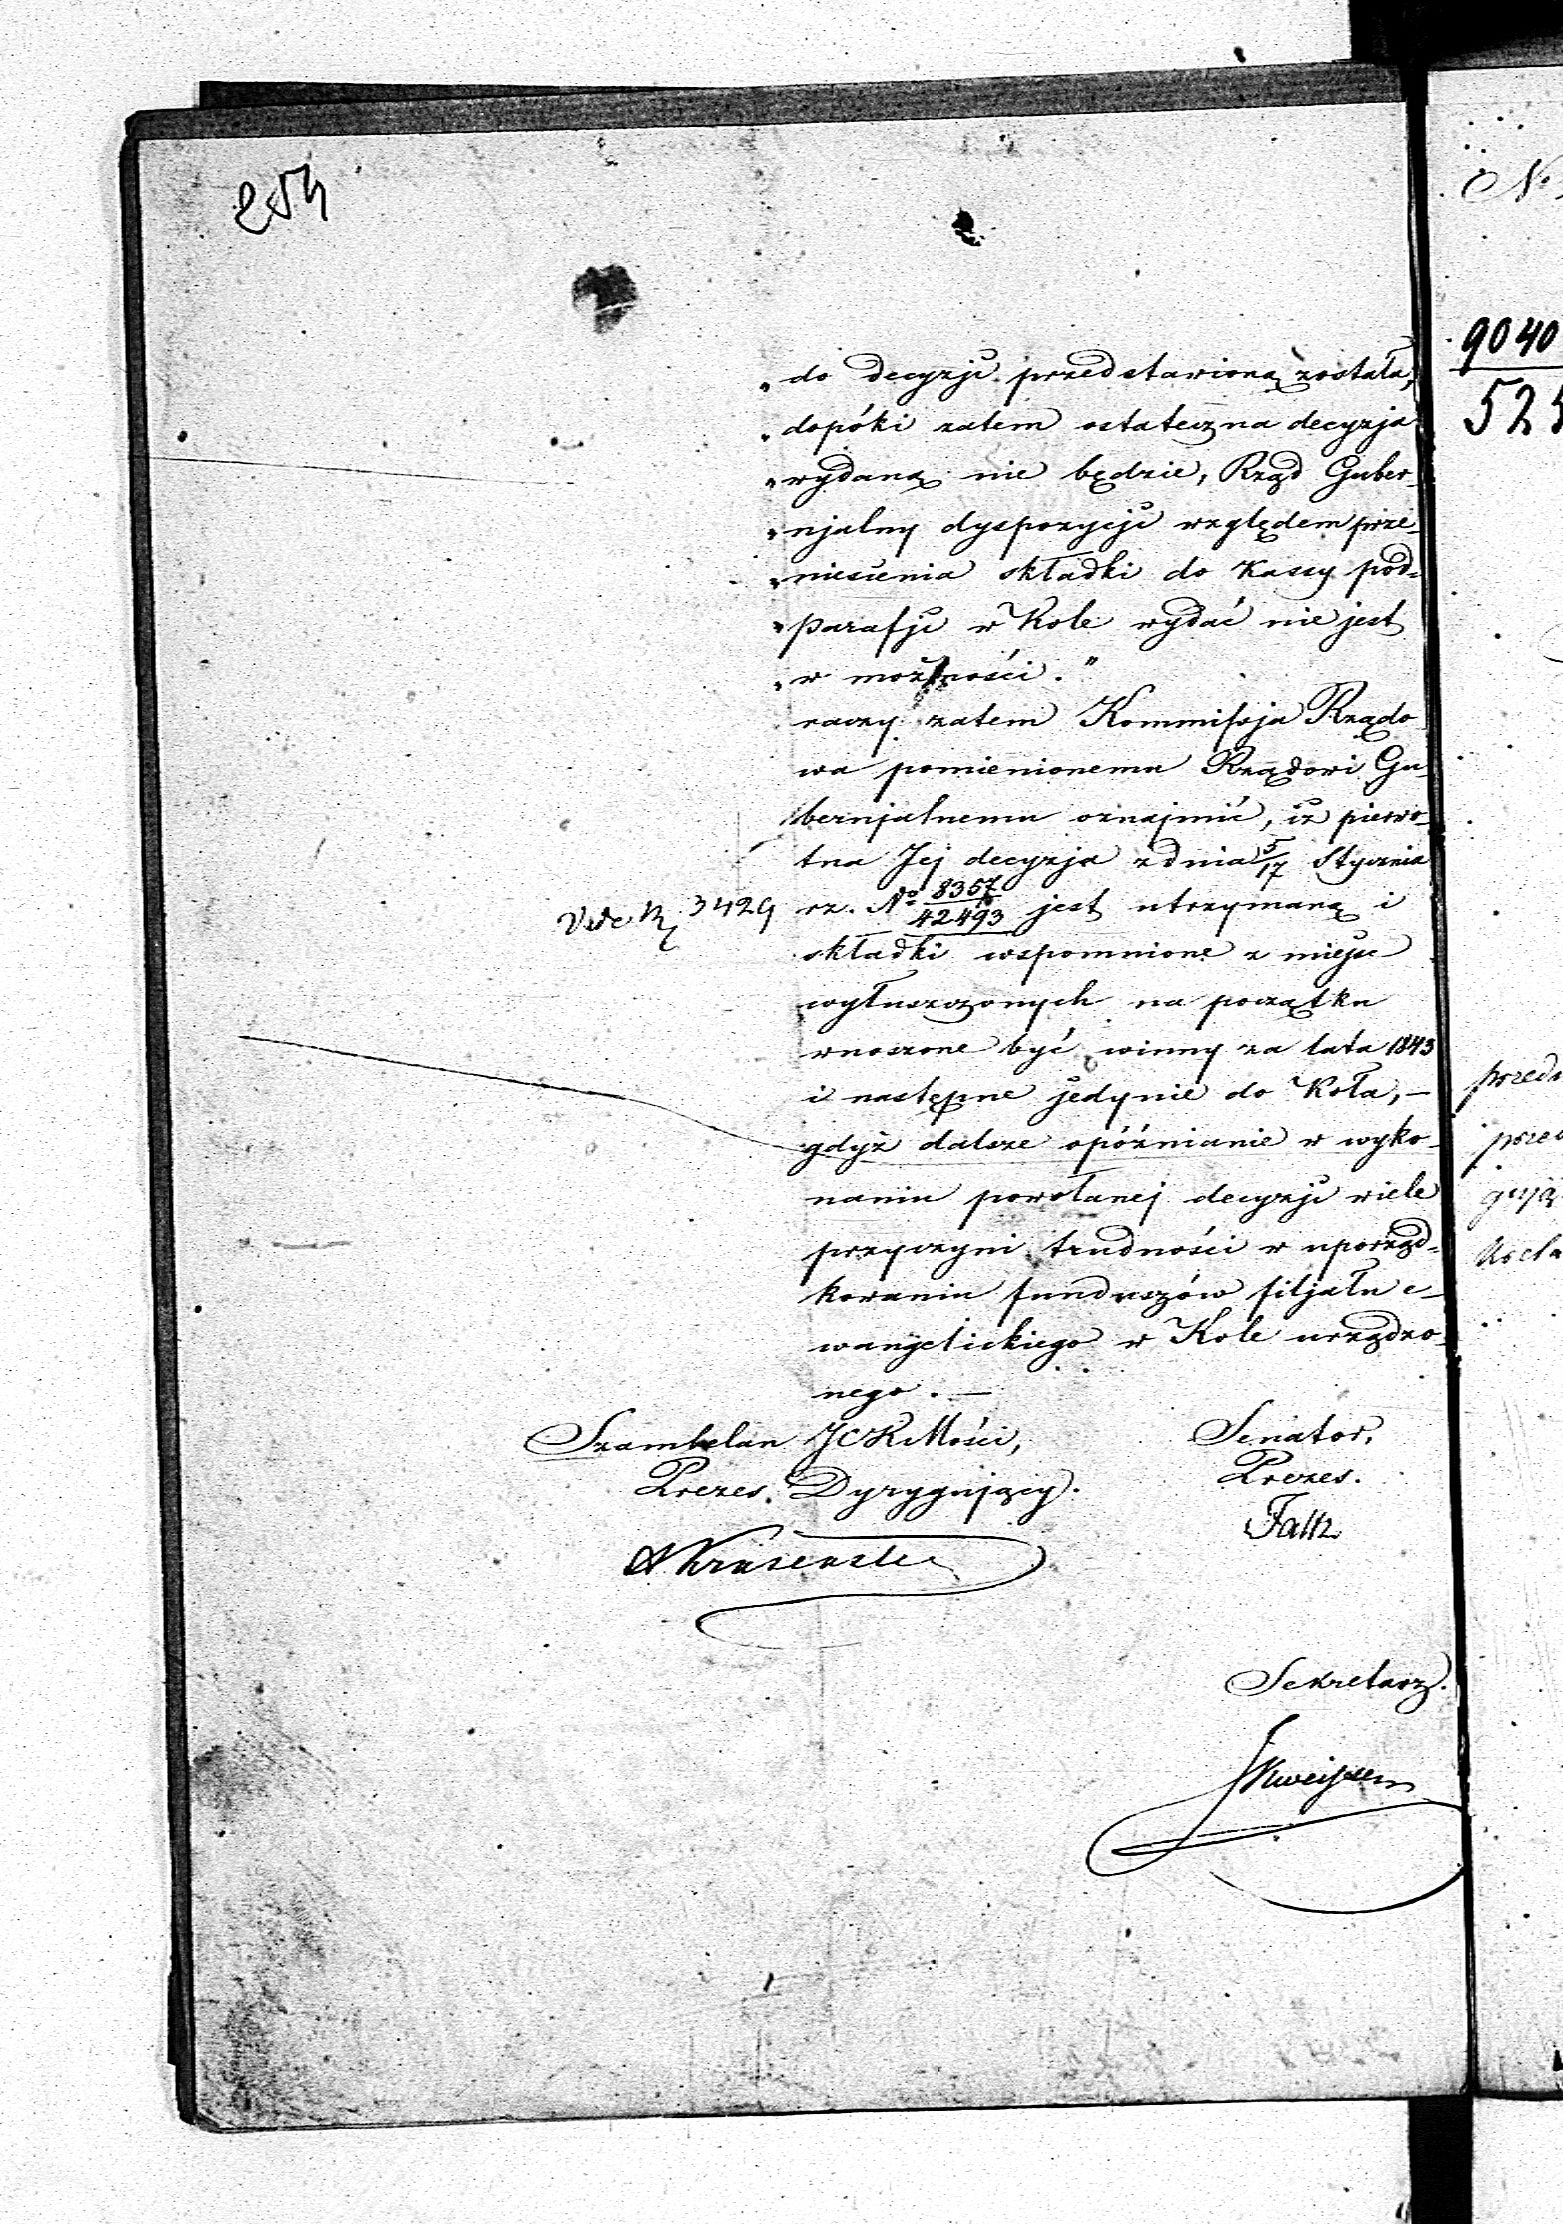 254
„do decyzji przedstawioną została,
„dopóki zatem ostateczna decyzja
„wydaną nie będzie, Rząd Guber-
„njalny dyspozycji względem prze-
„niesienia składki do Kassy pod-
„parafji w Kole wydać nie jest
„w możności."
raczy zatem Kommissja Rządo-
wa pomienionemu Rządowi Gu-
bernjalnemu oznajmić, iż pierwo-
tna Jej decyzja z dnia 5/17 Stycznia
rz. No 8357/42493 jest utrzymaną i
3429
składki wspomnione z miejsc
wyłuszczonych na początku
wnoszone być winny za lata 1843
i następne jedynie do Koła, –
gdyż dalsze opóźnianie w wyko-
naniu powołanej decyzji wiele
przyczyni trudności w uporząd-
kowaniu funduszów filjału e-
wangelickiego w Kole urządzo-
nego. –
Szambelan JCKMości,
Prezes Dyrygujący.
Senator,
Prezes.
Sekretarz.
No
9040
525